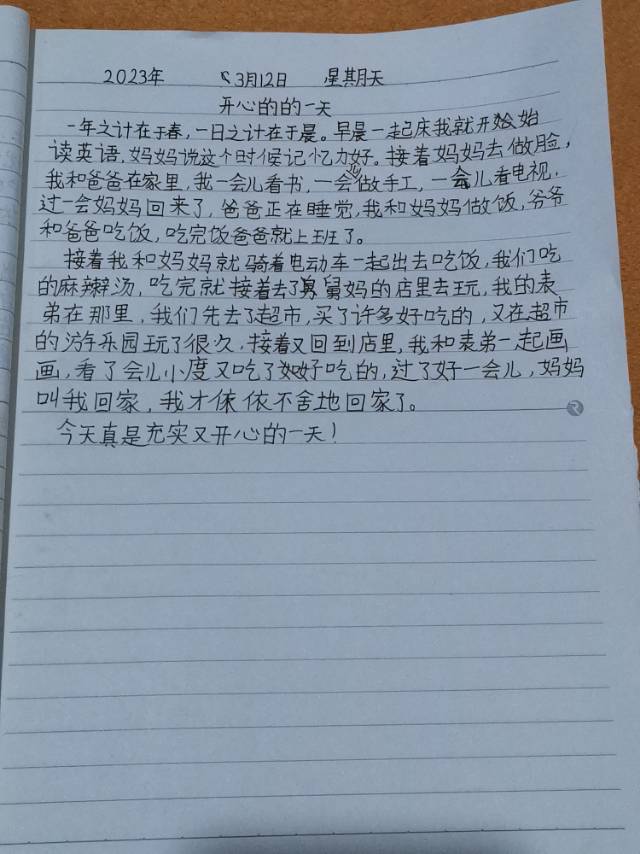 2023年 3月12日 星期天
开心的的一天
一年之计在于春,一日之计在于晨。早晨一起床我就开始
读英语,妈妈说这个时候记忆力好。接着妈妈去做脸,
我和爸爸在家里,我一会儿看书,一会儿做手工,一会儿看电视,
过一会妈妈回来了,爸爸正在睡觉,我和妈妈做饭,爷爷
和爸爸吃饭,吃完饭爸爸就上班了。
接着我和妈妈就骑着电动车一起出去吃饭,我们吃
的麻辣汤,吃完就接着去了舅妈的店里去玩,我的表
弟在那里,我们先去了超市,买了许多好吃的,又在超市
的游乐园玩了很久,接着又回到店里,我和表弟一起画
画,看了会儿小度又吃了好吃的,过了好一会儿,妈妈
叫我回家,我才依依不舍地回家了。
今天真是充实又开心的一天!